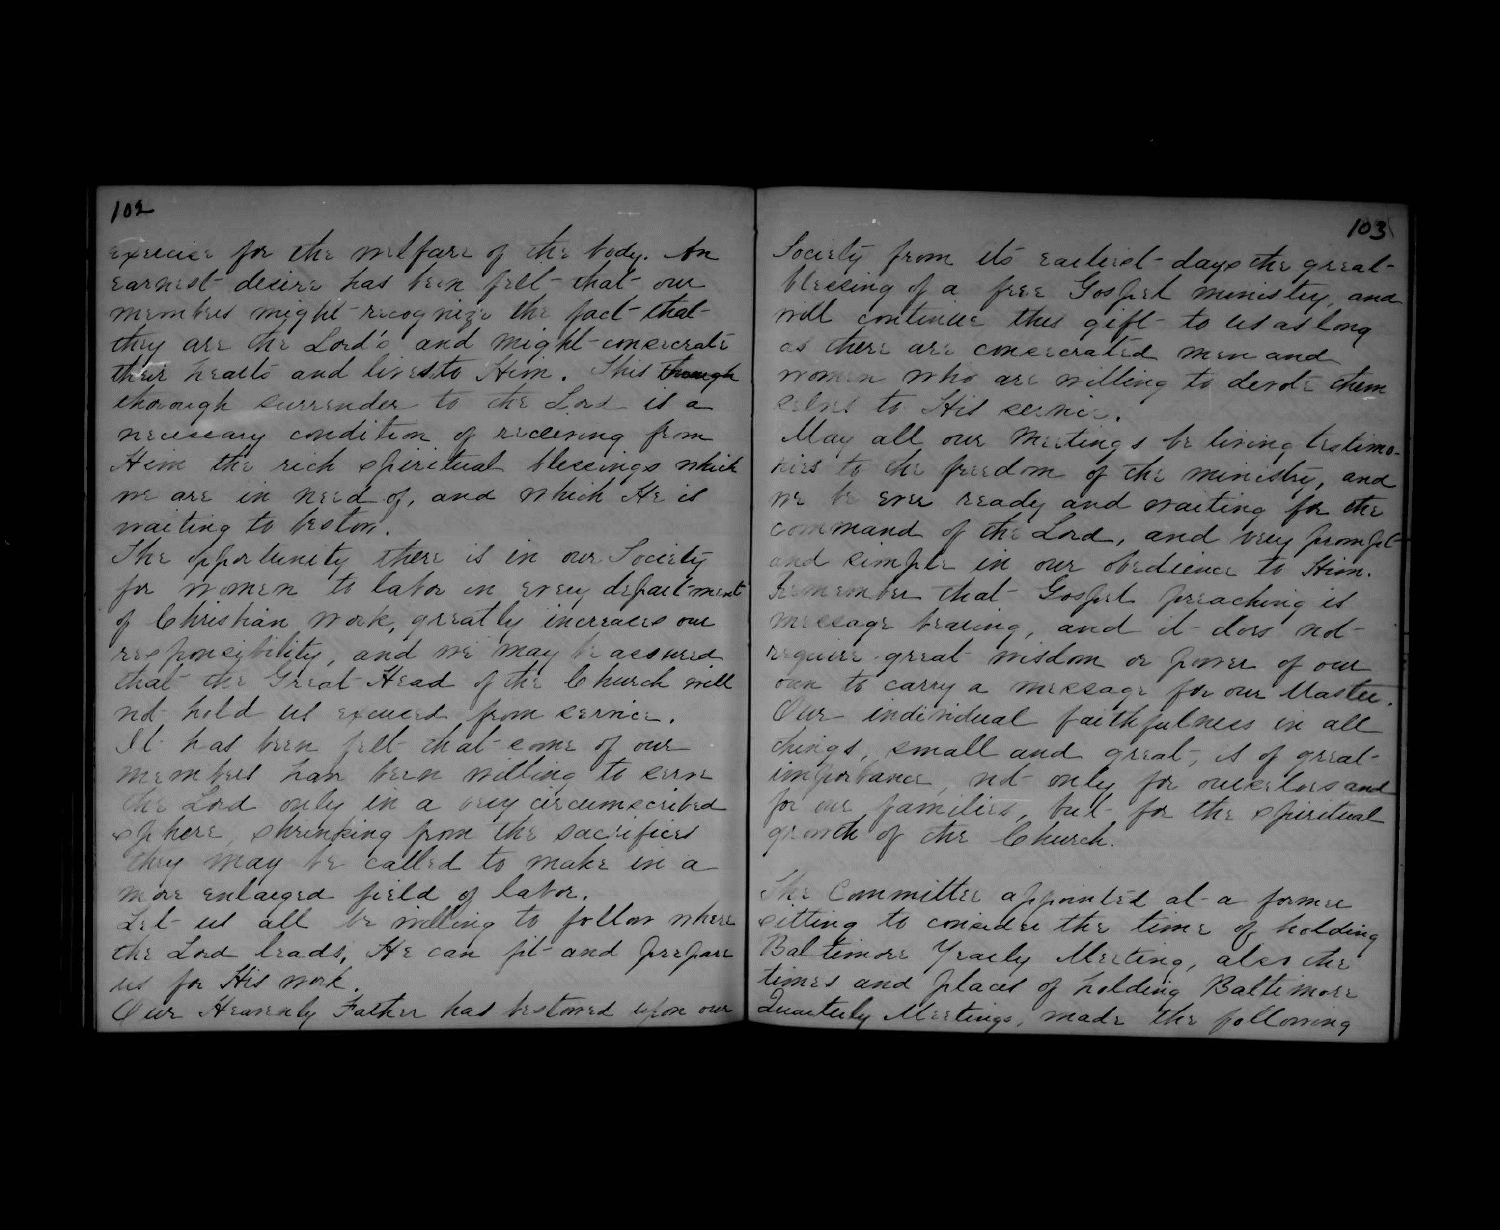 102
exercise for the welfare of the body. An
earnest desire has been felt that our
members might recognize the fact that
they are the Lord's and might consecrate
their hearts and lives to Him. This though
thorough surrender to the Lord is a
necessary condition of receiving from
Him the rich spiritual blessings which
we are in need of, and which He is
waiting to bestow.
The opportunity there is in our Society
for women to labor in every department
of Christian work, greatly increases our
responsibility, and we may be assured
that the Great Head of the Church will
not hold us excused from service.
It has been felt that some of our
members have been willing to serve
the Lord only in a very circumscribed
sphere, shrinking from the sacrifices
they may be called to make in a
more enlarged field of labor.
Let us all be willing to follow where
the Lord leads, He can fit and prepare
us for His work.
Our Heavenly Father has bestowed upon our
103
Society from its earliest days the great
blessing of a free Gospel ministry, and
will continue this gift to us as long
as there are consecrated men and
women who are willing to devote them
selves to His service.
May all our Meetings be living testimo-
nies to the freedom of the ministry, and
we be ever ready and waiting for the
command of the Lord, and very prompt
and simple in our obedience to Him.
Remember that Gospel preaching is
message bearing, and it does not
require great wisdom or power of our
own to carry a message for our Master.
Our individual faithfulness in all
things, small and great, is of great
importance, not only for ourselves and
for our families, but for the spiritual
growth of the Church.
The Committee appointed at a former
sitting to consider the time of holding
Baltimore Yearly Meeting, also the
times and places of holding Baltimore
Quarterly Meetings, made the following